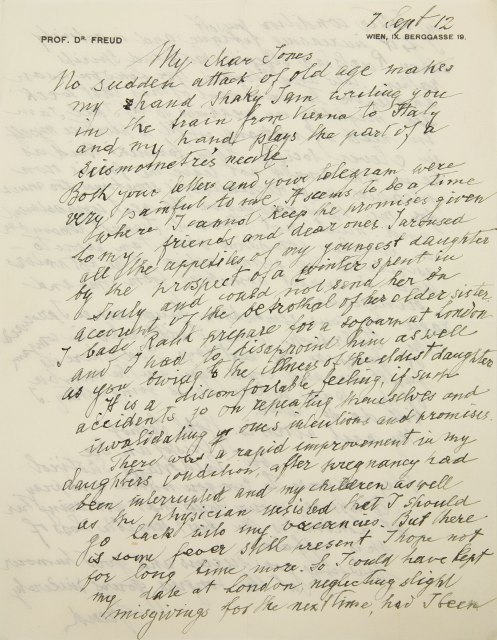 7 Sept 12
PROF. DR FREUD
WIEN, IX. BERGGASSE 19.
My dear Jones
No sudden attack of old age makes
my hand shaky I am writing you
in the train from Vienna to Italy
and my hand plays the part of a
seismometre's needle
Both your letters and your telegram were
very painful to me. It seems to be a time
where I cannot keep the promises given
to my friends and dear ones. I aroused
all the appetites of my youngest daughter
by the prospect of a winter spent in
Sicily and could not send her on
account of the betrothal of her older sister
I bade Rank prepare for a sojourn at London
and I had to disappoint him as well
as you owing to the illness of the eldest daughter
It is a discomfortable feeling, if such
accidents go on repeating themselves and
invalidating one's intentions and promises.
There was a rapid improvement in my
daughters condition, after pregnancy had
been interrupted and my children as well
as the physician insisted that I should
go back into my vacancies. But there
is some fever still present I hope not
for long time more. So I could have kept
my date at London neglecting slight
misgivings for the next time, had I been